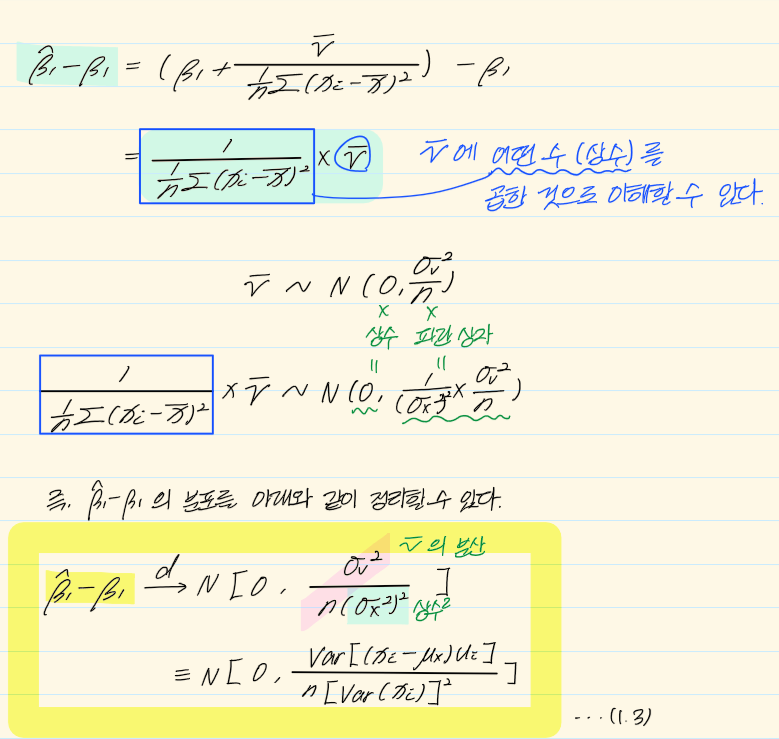 β̂₁-β₁ = (β₁ + v̄ / (1/n Σ(xᵢ-x̄)²)) - β₁
= 1 / (1/n Σ(xᵢ-x̄)²) × v̄
v̄에 어떤 수(상수)를
곱한 것으로 이해할 수 있다.
v̄ ~ N(0, σᵥ²/n)
× ×
상수 파란 상자
∥ ∥
1 / (1/n Σ(xᵢ-x̄)²) × v̄ ~ N(0, 1/(σₓ²)² × σᵥ²/n)
즉, β̂₁-β₁의 분포를 아래와 같이 정리할 수 있다.
v̄의 분산
β̂₁-β₁ →ᵈ N[0, σᵥ² / n(σₓ²)²]
상수²
≡ N[0, Var[(xᵢ-μₓ)uᵢ] / n[Var(xᵢ)]²]
···(1.3)